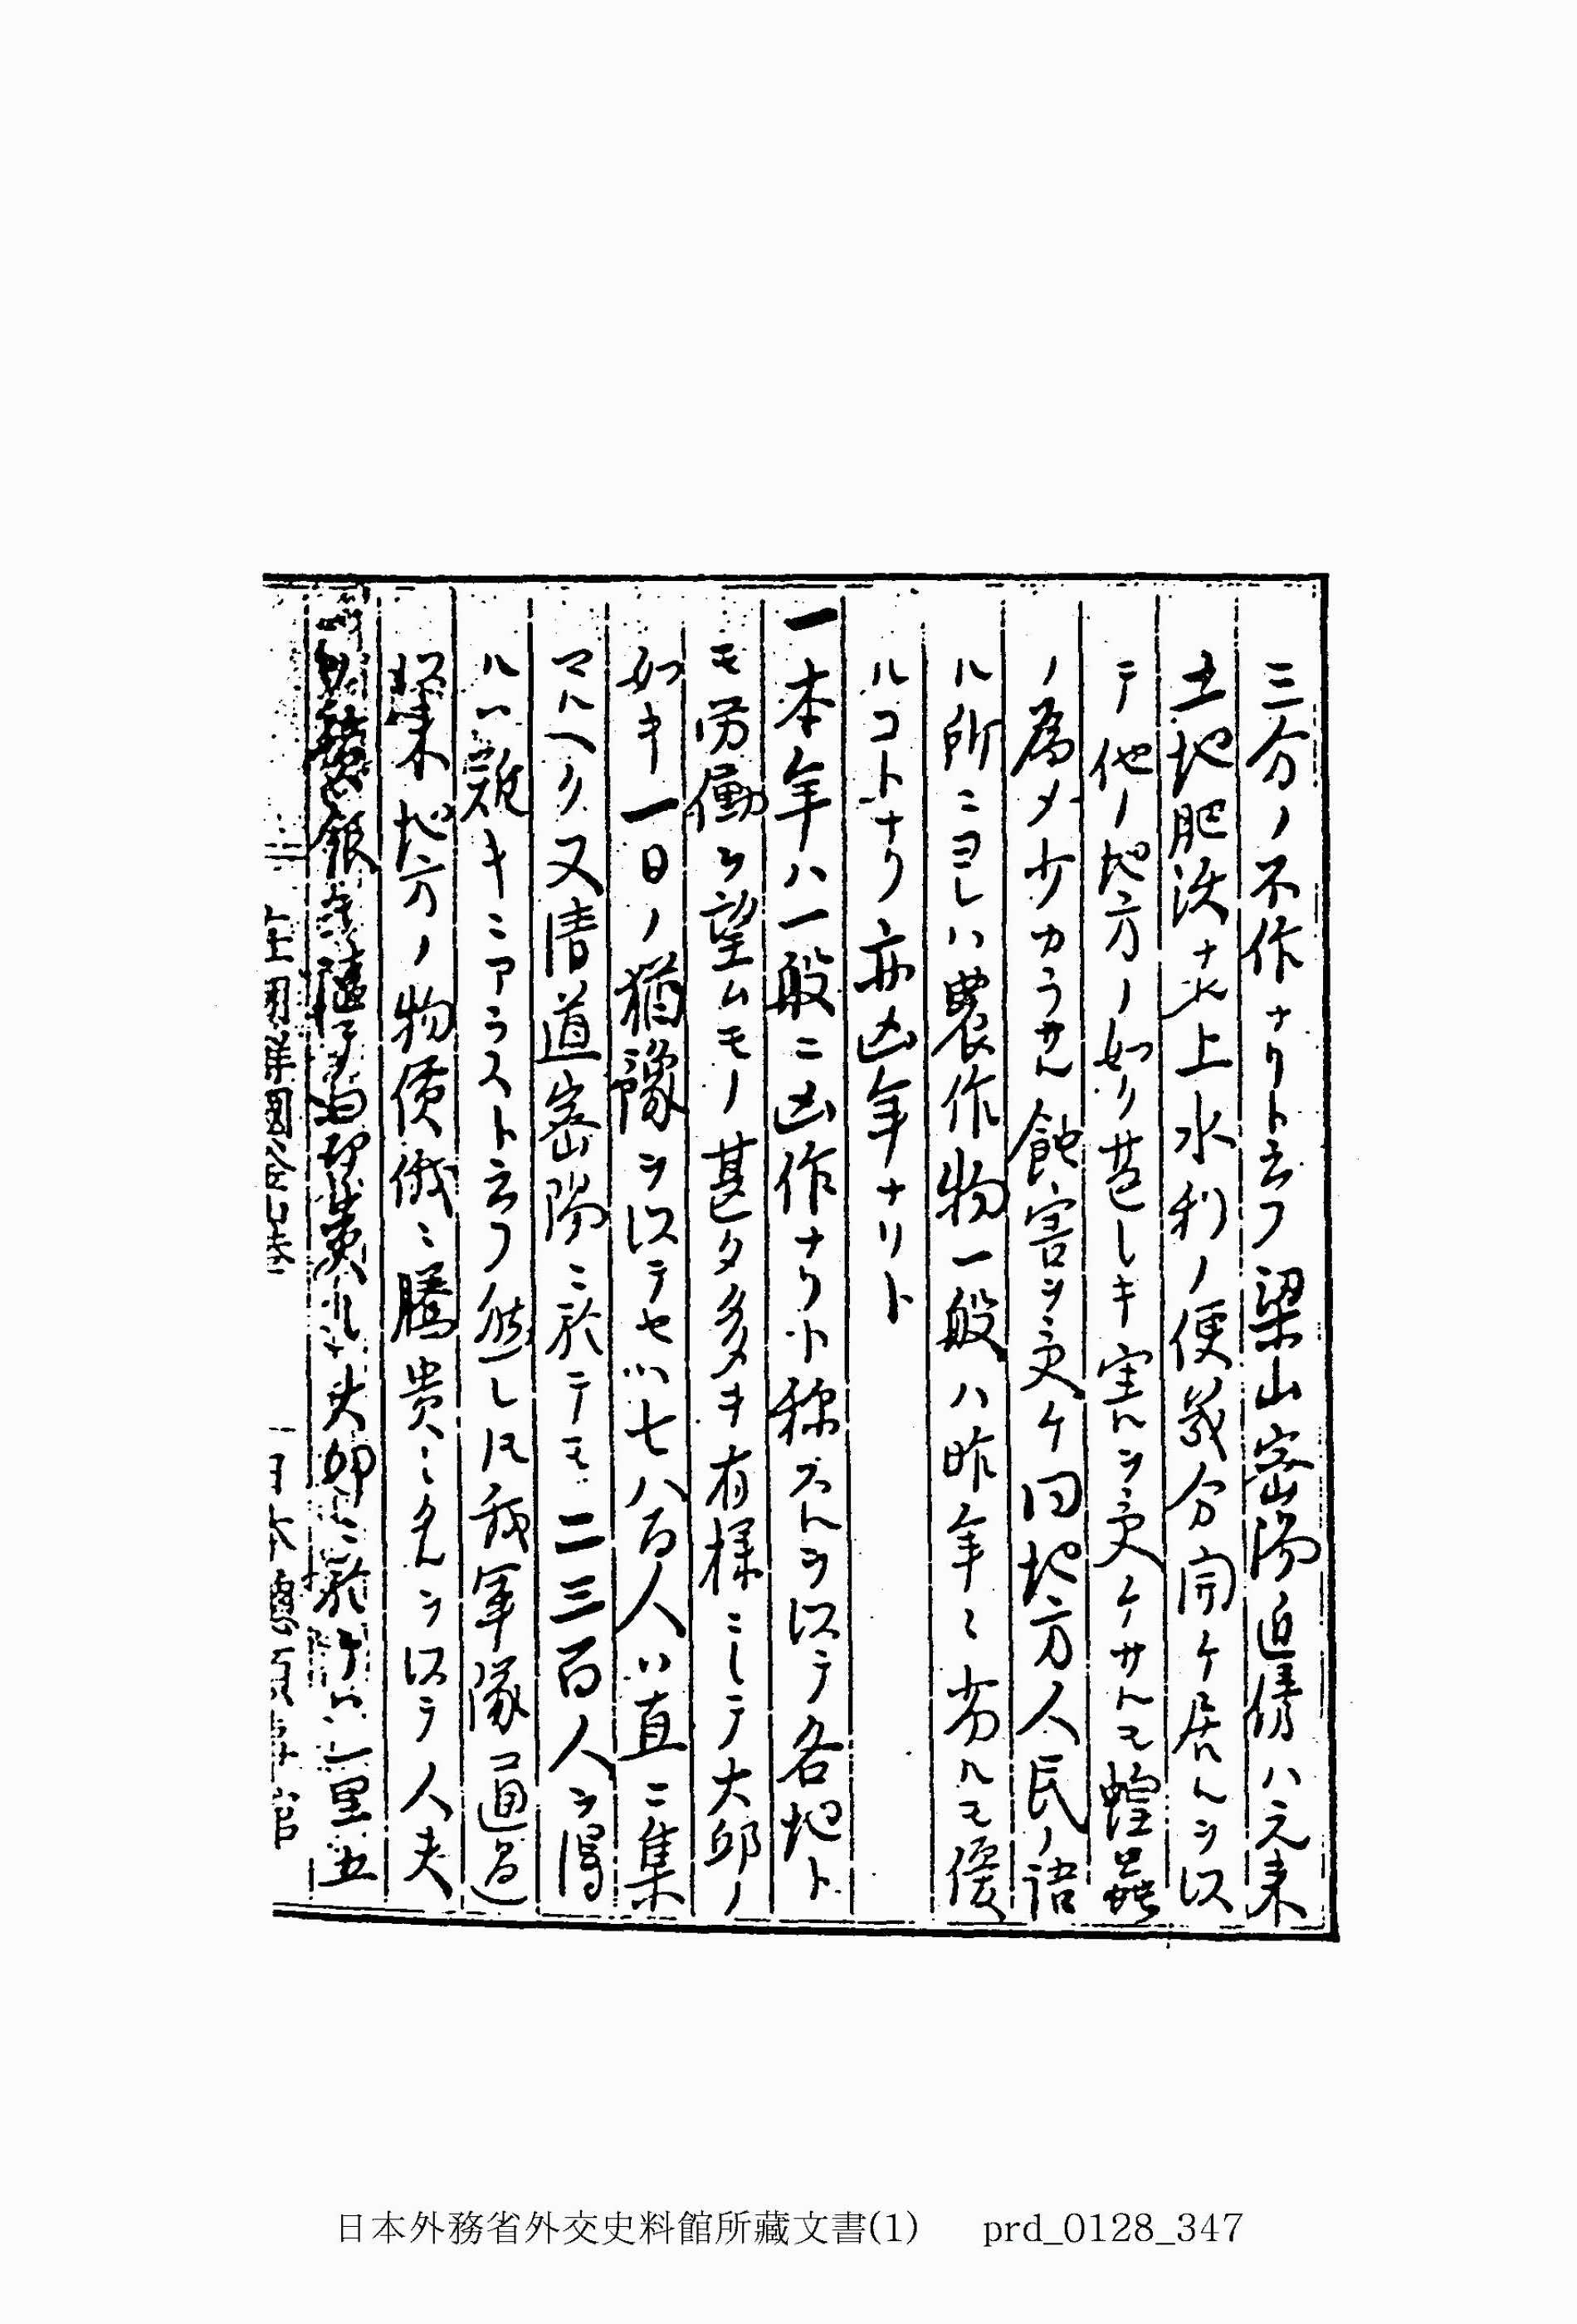 三分ノ不作ナリト云フ梁山密陽近傍ハ元来
土地肥沃ナル上水利ノ便幾分開ケ居ルヲ以
テ他ノ地方ノ如ク甚シキ害ヲ受ケサルモ蝗蟲
ノ為メ少カラサル蝕害ヲ受ケ同地方人民ノ語
ル所ニヨレハ農作物一般ハ昨年ニ劣ルモ優
ルコトナク亦凶年ナリト
一本年ハ一般ニ凶作ナリト称スルヲ以テ各地ト
モ労働ヲ望ムモノ甚タ多キ有様ニシテ大邱ノ
如キ一日ノ猶豫ヲ以テセハ七八百人ハ直ニ集
マルヘク又清道密陽ニ於テモ二三百人ヲ得
ルハ難キニアラスト云フ然レ𪜈我軍隊通過
以来地方ノ物價俄ニ騰貴シタルヲ以テ人夫
大邱ニ於テハ一里五
在 國 國
日本 領事官
日本外務省外交史料館所藏文書(1) prd_0128_347